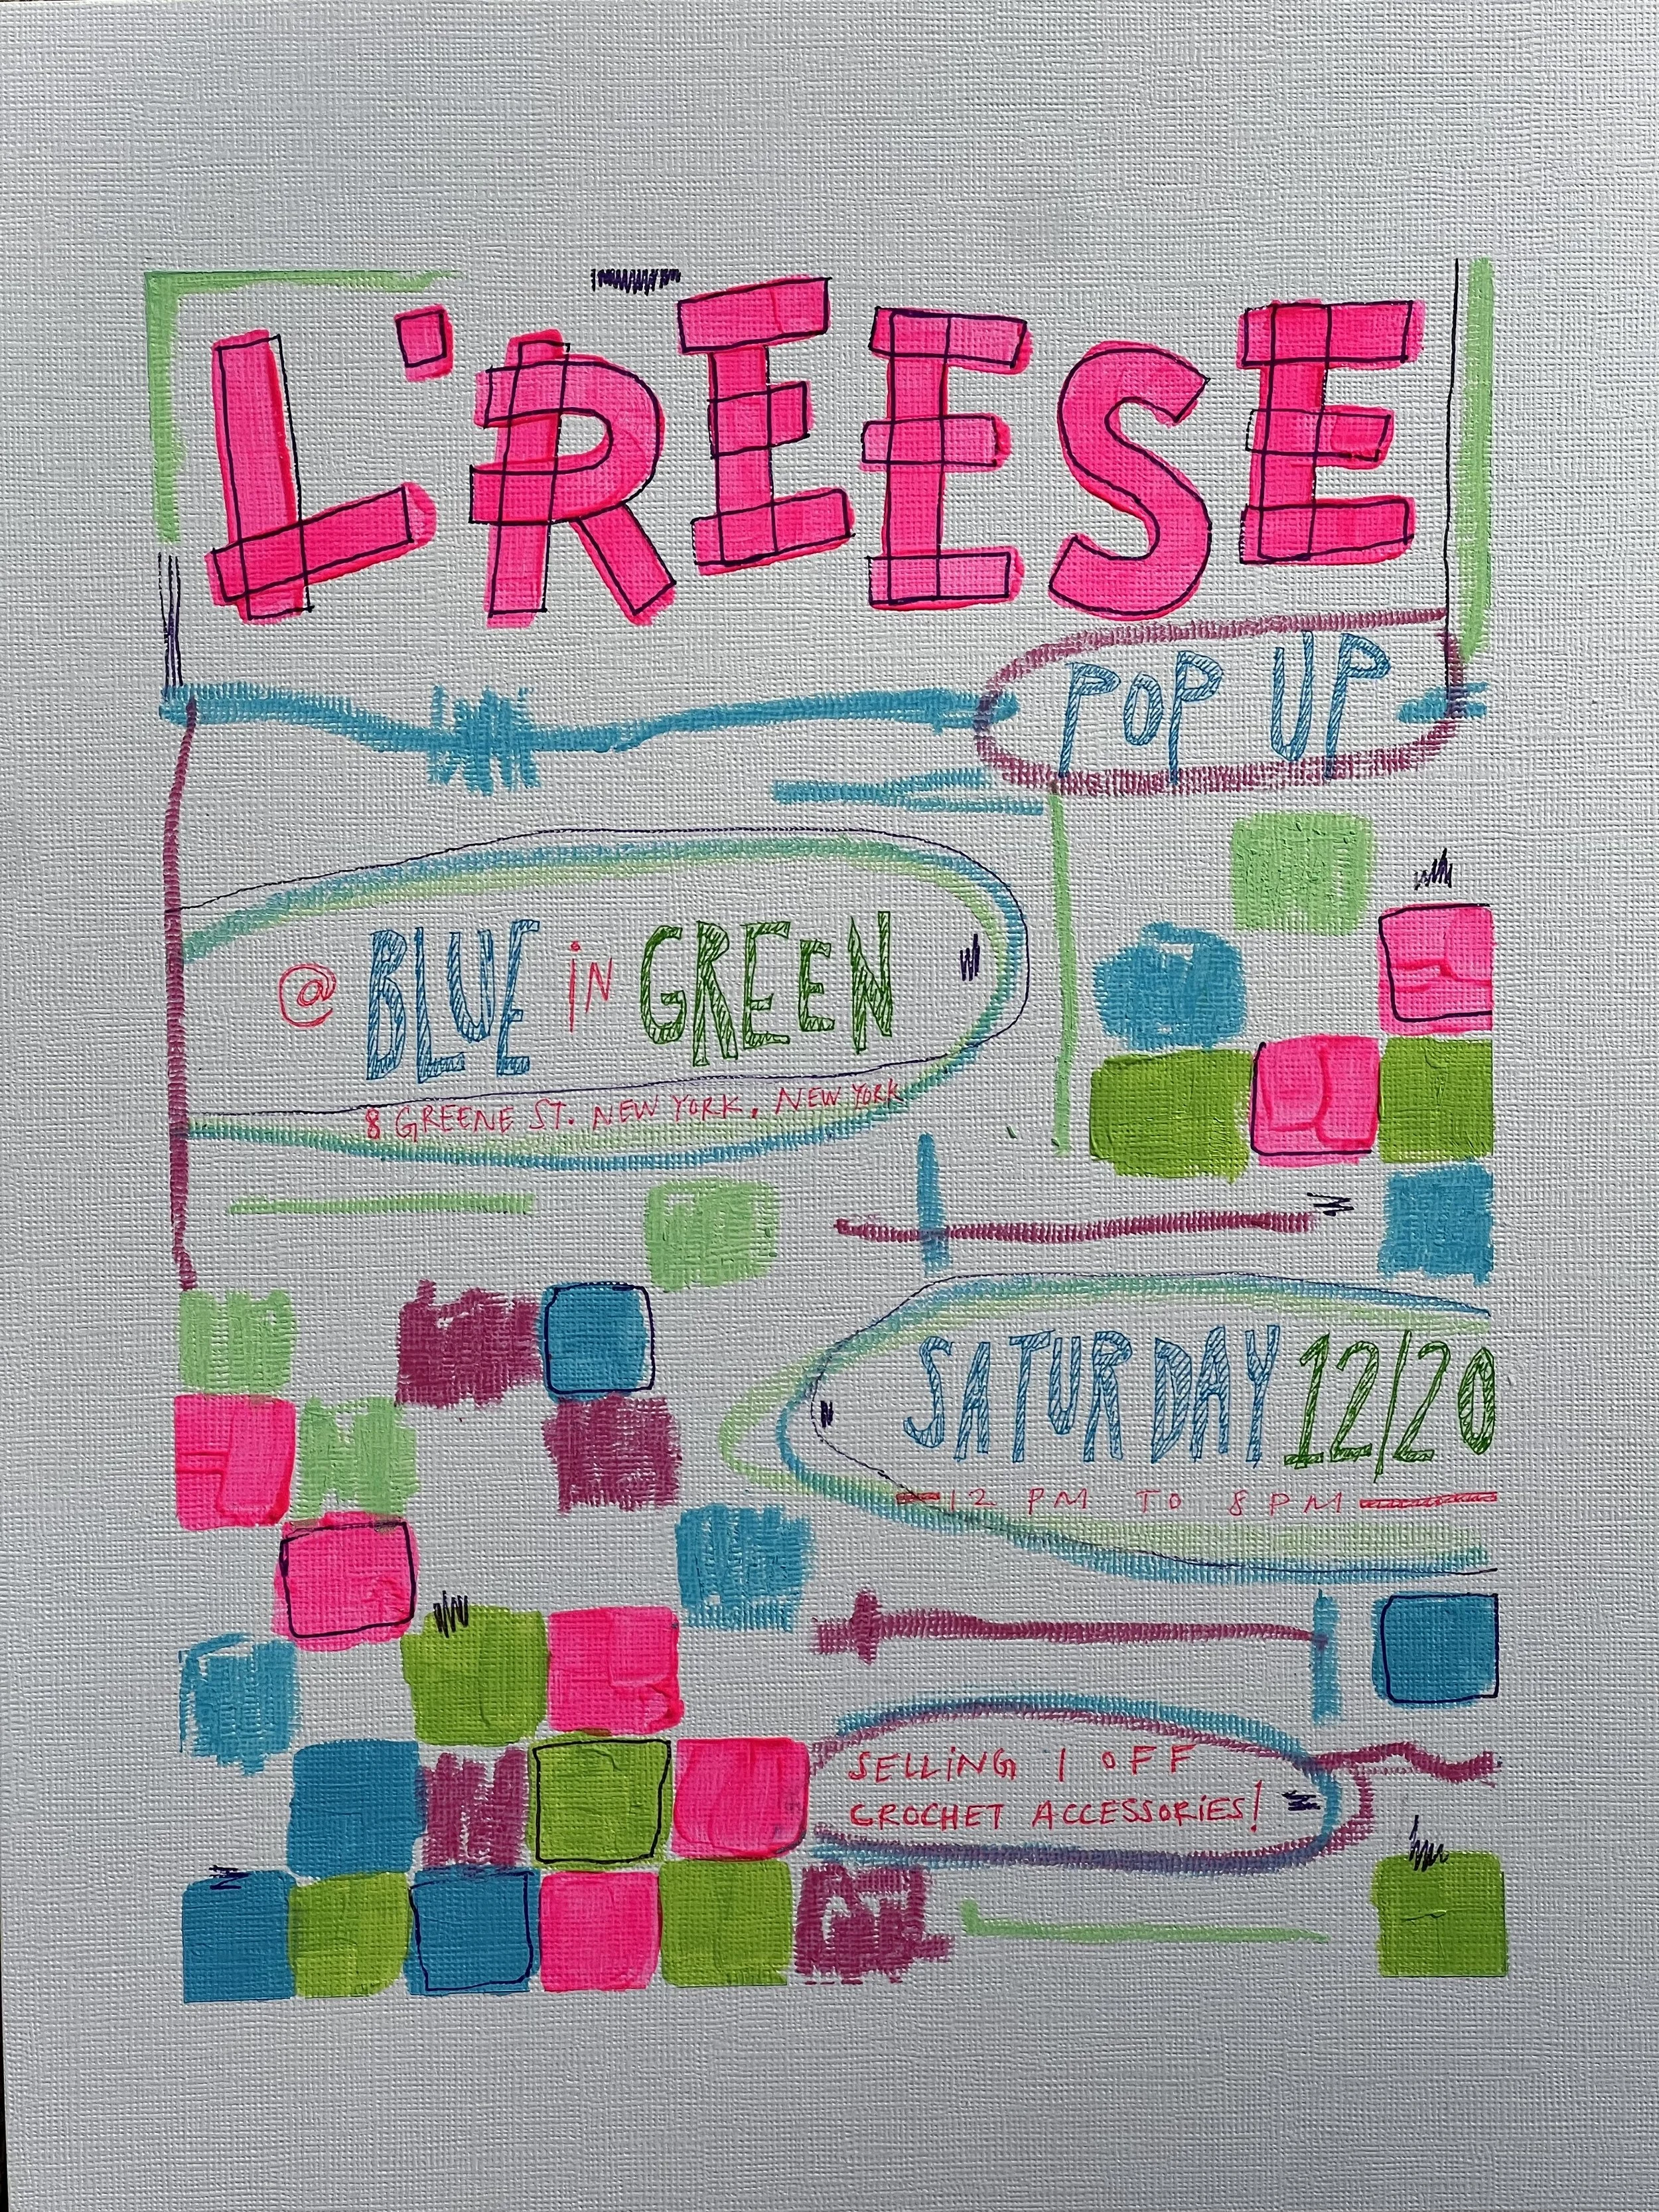 L'REESE
POP UP
@ BLUE iN GREEN
8 GREENE ST. NEW YORK, NEW YORK
SATURDAY 12/20
12 PM TO 8 PM
SELLiNG 1 OFF
CROCHET ACCESSORiES!